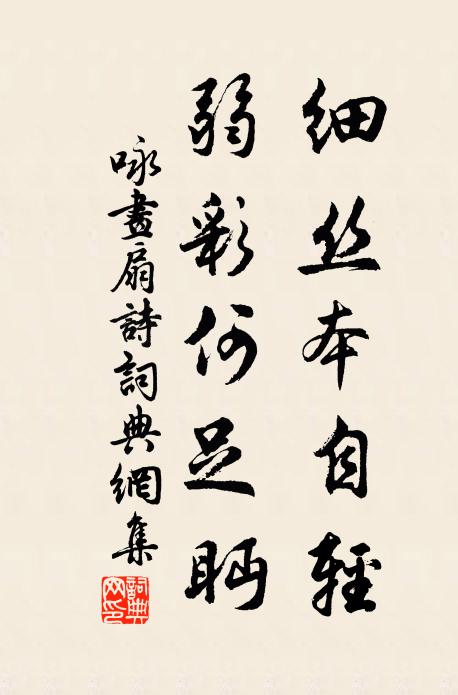 细丝本自輕
弱彩何足眄
咏畫扇詩詞典網集
詞典网印